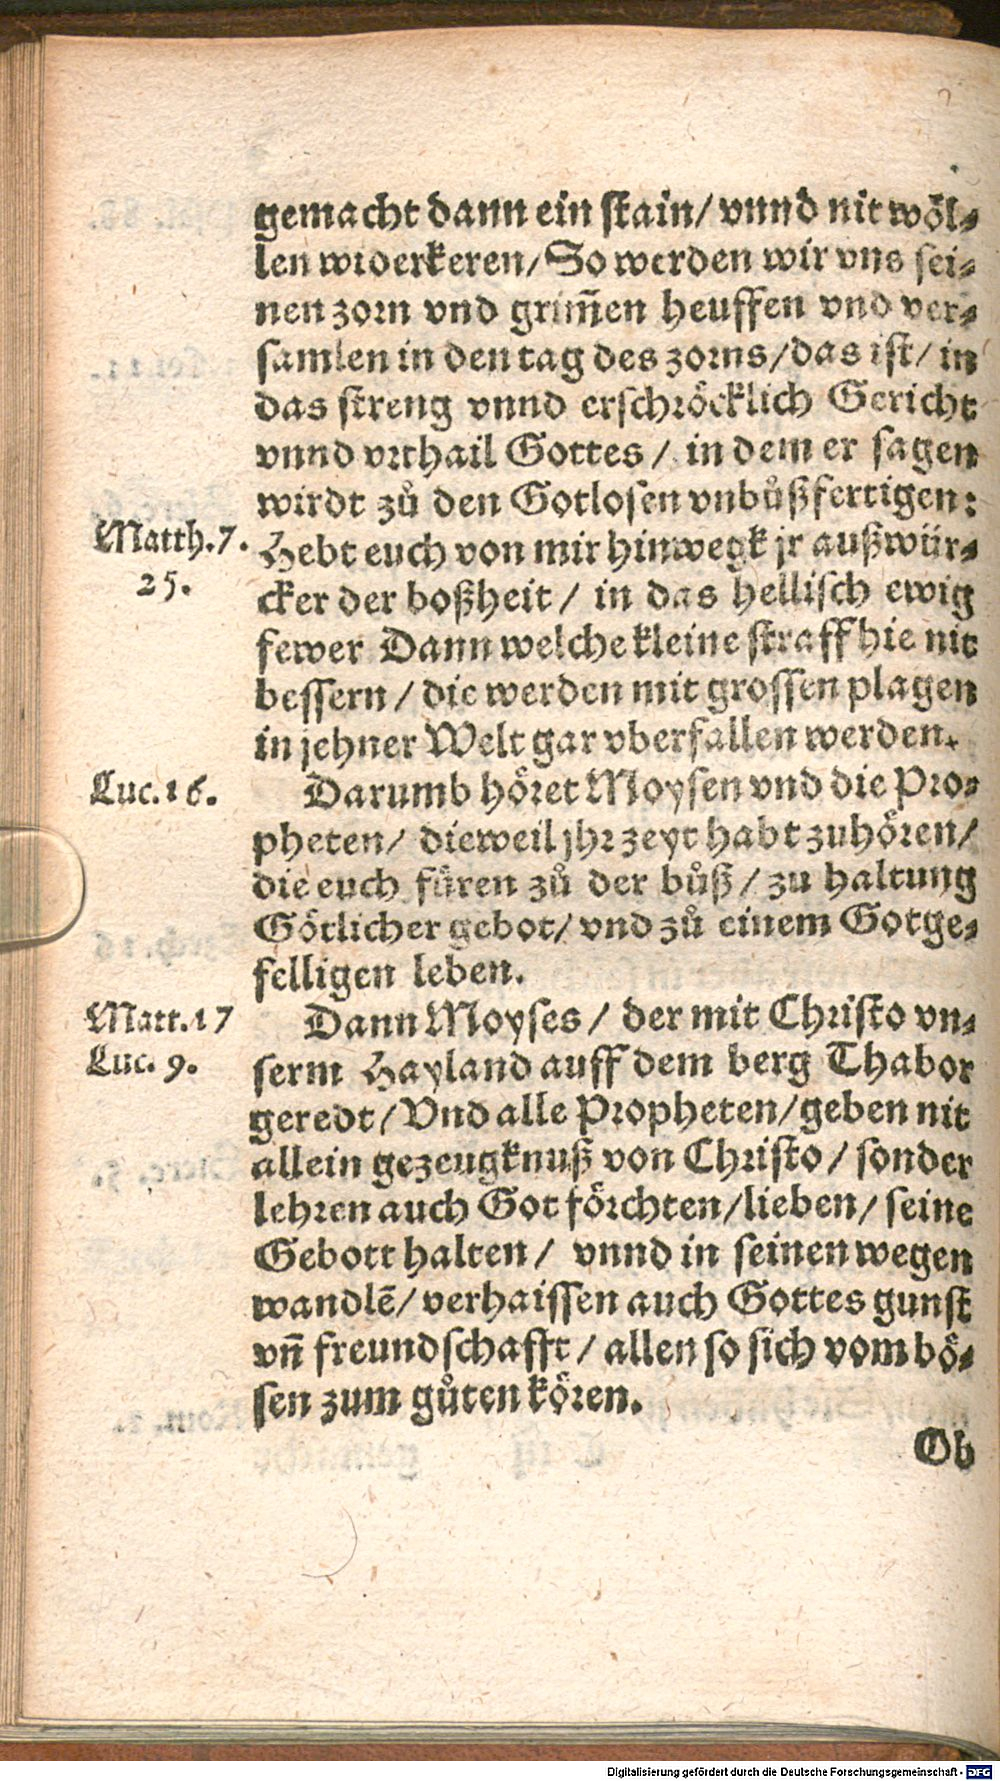 gemacht dann ein stain/ vnnd nit wöl⸗
len widerkeren/ So werden wir vns sei⸗
nen zorn vnd grim̃en heuffen vnd ver⸗
samlen in den tag des zorns/ das ist/ in
das streng vnnd erschröcklich Gericht
vnnd vrthail Gottes/ in dem er sagen
wirdt zů den Gotlosen vnbůßfertigen:
Matth.7.
25.
Hebt euch von mir hinwegk jr außwür⸗
cker der boßheit/ in das hellisch ewig
fewer Dann welche kleine straff hie nit
bessern/ die werden mit grossen plagen
in jehner Welt gar vberfallen werden.
Luc.16.
Darumb höret Moysen vnd die Pro⸗
pheten/ dieweil jhr zeyt habt zuhören/
die euch füren zů der bůß/ zu haltung
Götlicher gebot/ vnd zů einem Gotge⸗
felligen leben.
Matt.17
Luc. 9.
Dann Moyses/ der mit Christo vn⸗
serm Hayland auff dem berg Thabor
geredt/ Vnd alle Propheten/ geben nit
allein gezeugknuß von Christo/ sonder
lehren auch Got förchten/ lieben/ seine
Gebott halten/ vnnd in seinen wegen
wandlẽ/ verhaissen auch Gottes gunst
vñ freundschafft/ allen so sich vom bö⸗
sen zum gůten kören.
Ob
Digitalisierung gefördert durch die Deutsche Forschungsgemeinschaft - DFG